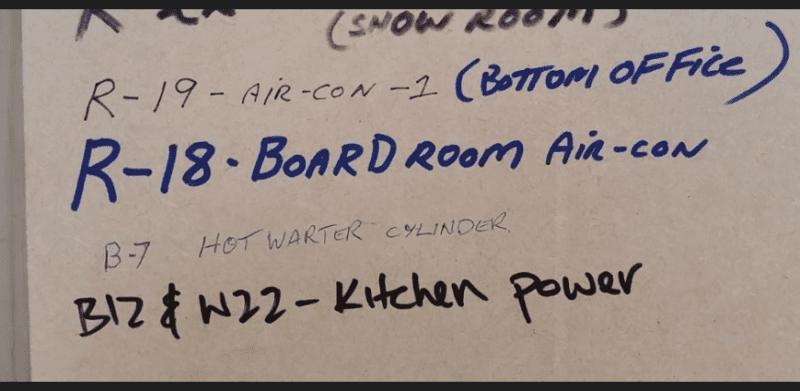 (SNOW ROOM)
R-19 - AIR-CON -1 (BOTTOM OFFice)
R-18 - BOARD ROOM AiR-CON
B-7 HOT WARTER CYLINDER.
B12 & W22 - Kitchen power